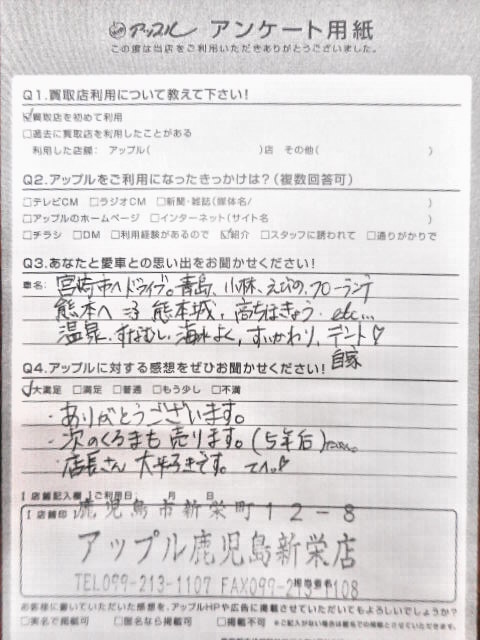 アップル アンケート用紙
この度は当店をご利用いただきありがとうございました。
Q1.買取店利用について教えて下さい!
☑買取店を初めて利用
□過去に買取店を利用したことがある
利用した店舗: アップル( )店 その他( )
Q2.アップルをご利用になったきっかけは?(複数回答可)
□テレビCM □ラジオCM □新聞・雑誌(媒体名/ )
□アップルのホームページ □インターネット(サイト名 )
□チラシ □DM □利用経験があるので ☑紹介 □スタッフに誘われて □通りがかりで
Q3.あなたと愛車との思い出をお聞かせください!
車名: 宮崎市へドライブ。青島、小林、えびの、フローランテ
熊本へ 熊本城、高ちほきょう etc...
温泉、すなむし、海水よく、すいかわり、テント♡
Q4.アップルに対する感想をぜひお聞かせください! 自家
☑大満足 □満足 □普通 □もう少し □不満
・ありがとうございます。
・次のくるまも売ります。(5年后)
・店長さん 大好きです。
I 店舗記入欄 I ご利用日: 月 日
I 店舗印 鹿児島市新栄町12-8
アップル鹿児島新栄店
TEL099-213-1107 FAX099-213-1108
担当者名:
お客様に書いていただいた感想を、アップルHPや広告に掲載させていただいてもよろしいでしょうか?
□実名で掲載可 □匿名なら掲載可 □掲載不可 ※ご記入がない場合は匿名での掲載とさせていただきます。